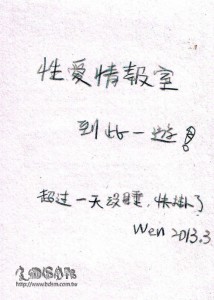 性愛情報室
到此一遊!
超过一天沒睡,快掛了
Wen 2013.3
http://www.bdsm.com.tw